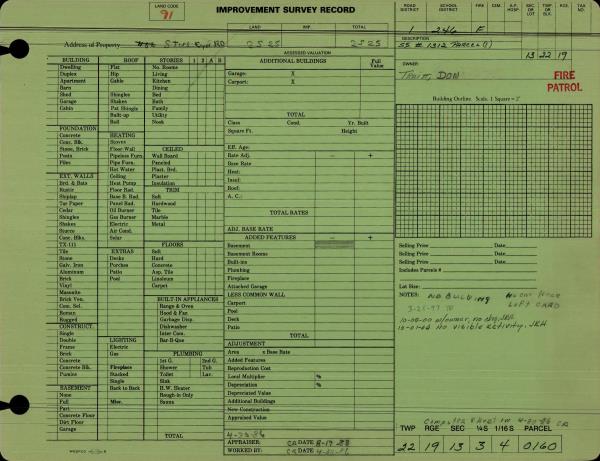 LAND CODE
91
IMPROVEMENT SURVEY RECORD
LAND IMP. TOTAL
2525 2525
Address of Property
ROAD DISTRICT SCHOOL DISTRICT FIRE CEM. A.P. HOSP. SEC. OR LOT TWP. OR BLK. RGE. TAX NO.
246 F
DESCRIPTION
SS # 1312 PARCEL (1)
13 22 19
OWNER:
DON
FIRE PATROL
ASSESSED VALUATION
Building Outline. Scale, 1 Square =
BUILDING
Dwelling
Duplex
Apartment
Barn
Shed
Garage
Cabin
FOUNDATION
Concrete
Conc. Blk.
Stone, Brick
Posts
Piles
EXT. WALLS
Brd. & Bats
Rustic
Shiplap
Tar Paper
Cedar
Shingles
Shakes
Stucco
Conc. Blks.
TX-111
Tile
Stone
Galv. Iron
Aluminum
Brick
Vinyl
Masonite
Brick Ven.
Com. Sel.
Roman
Rugged
CONSTRUCT.
Single
Double
Frame
Brick
Concrete
Concrete Blk.
Pumice
BASEMENT
None
Full
Part
Concrete Floor
Dirt Floor
Garage
ROOF
Flat
Hip
Gable
Shingles
Shakes
Pat Shingle
Built-up
Roll
HEATING
Stoves
Floor Wall
Pipeless Furn.
Pipe Furn.
Hot Water
Ceiling
Heat Pump
Floor Rad.
Base B. Rad.
Panel Rad.
Oil Burner
Gas Burner
Electric
Air Cond.
Solar
EXTRAS
Decks
Porches
Patio
Pool
LIGHTING
Electric
Gas
Fireplace
Stacked
Single
Back to Back
Misc.
STORIES 1 2 A B
No. Rooms
Living
Kitchen
Dining
Bed
Bath
Family
Utility
Nook
CEILED
Wall Board
Paneled
Plast. Brd.
Plaster
Insulation
TRIM
Soft
Hardwood
Tile
Marble
Metal
FLOORS
Soft
Hard
Concrete
Asp. Tile
Linoleum
Carpet
BUILT-IN APPLIANCES
Range & Oven
Hood & Fan
Garbage Disp.
Dishwasher
Inter Com.
Bar-B-Que
PLUMBING
1st G. 2nd G.
Shower Tub
Toilet Lav.
Sink
H.W. Heater
Rough-in Only
Sauna
TOTAL
ADDITIONAL BUILDINGS Full Value
Garage: X
Carport: X
TOTAL
Class Cond. Yr. Built
Square Ft. Height
Eff. Age:
Rate Adj. − +
Base Rate
Heat:
Insul:
Roof:
A. C.:
TOTAL RATES
ADJ. BASE RATE
ADDED FEATURES − +
Basement
Basement Rooms
Built-ins
Plumbing
Fireplace
Attached Garage
LESS COMMON WALL
Carport
Pool
Deck
Patio
TOTAL
ADJUSTMENT
Area x Base Rate
Added Features
Reproduction Cost
Local Multiplier %
Depreciation %
Depreciated Value
Additional Buildings
New Construction
Appraised Value
4-30-86
APPRAISER: CR DATE 8-19-88
WORKED BY: CR DATE
Selling Price Date
Selling Price Date
Selling Price Date
Includes Parcels #
Lot Size:
NOTES: NO BUILDING
LEFT CARD
3-25-97
TWP RGE SEC ¼S 1/16S PARCEL
22 19 13 3 4 0160